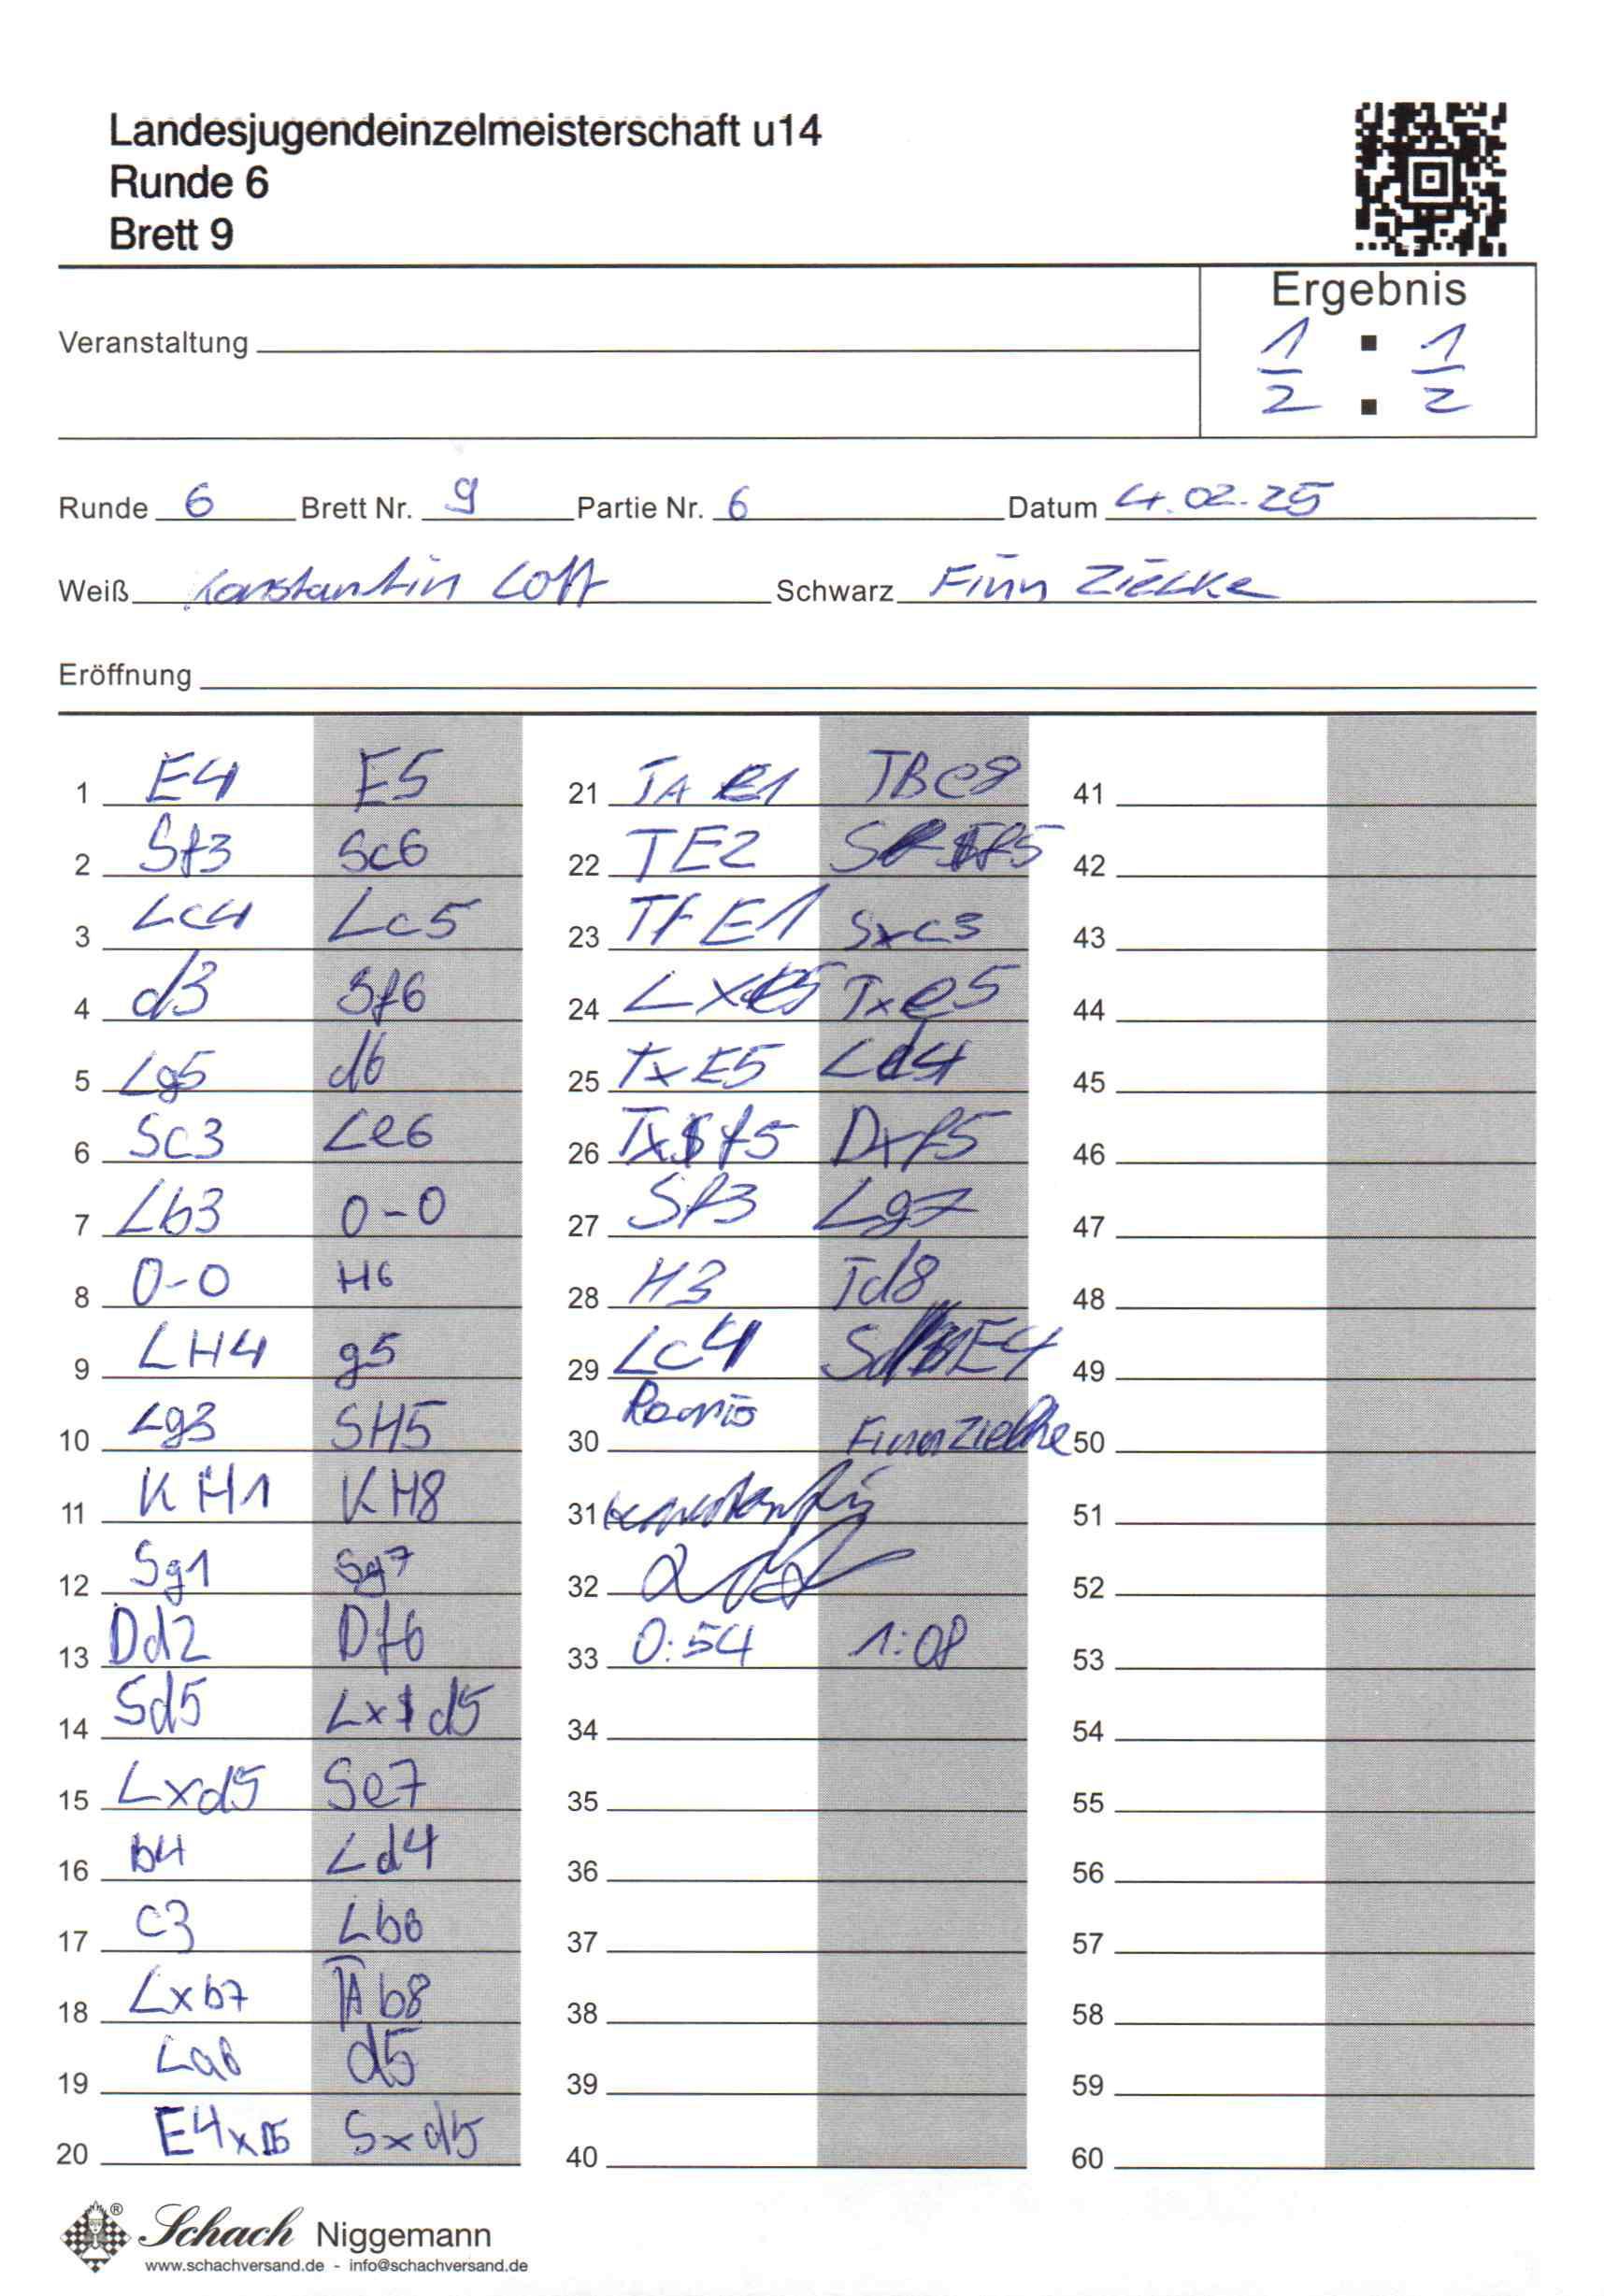 Landesjugendeinzelmeisterschaft u14
Runde 6
Brett 9
Ergebnis
Veranstaltung
1/2 : 1/2
Runde 6 Brett Nr. 9 Partie Nr. 6 Datum 4.02.25
Weiß Konstantin Lott Schwarz Finn Zielke
Eröffnung
1 E4 E5
2 Sf3 Sc6
3 Lc4 Lc5
4 d3 Sf6
5 Lg5 d6
6 Sc3 Le6
7 Lb3 0-0
8 0-0 H6
9 LH4 g5
10 Lg3 SH5
11 KH1 KH8
12 Sg1 Sg7
13 Dd2 Df6
14 Sd5 Lxd5
15 Lxd5 Se7
16 b4 Ld4
17 c3 Lb6
18 Lxb7 TAb8
19 La6 d5
20 E4xD5 Sxd5
21 TA E1 TBe8
22 TE2 Sf5
23 TfE1 Sxc3
24 Lxe5 Txe5
25 TxE5 Ld4
26 Txf5 Dxf5
27 Sf3 Lg7
28 H3 Td8
29 Lc4 SE4
30 Remis Finn Zielke
31 Konstantin
32 Lott
33 0:54 1:08
34
35
36
37
38
39
40
41
42
43
44
45
46
47
48
49
50
51
52
53
54
55
56
57
58
59
60
Schach Niggemann
www.schachversand.de - info@schachversand.de